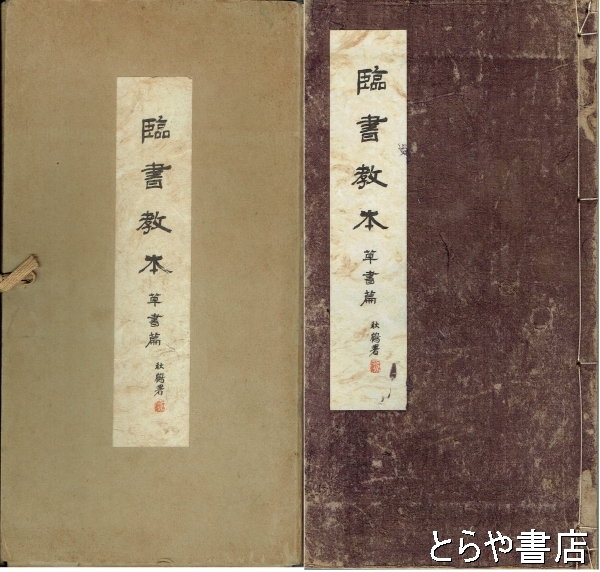 臨書教本
草書篇
秋鶴署
臨書教本
草書篇
秋鶴署
とらや書店